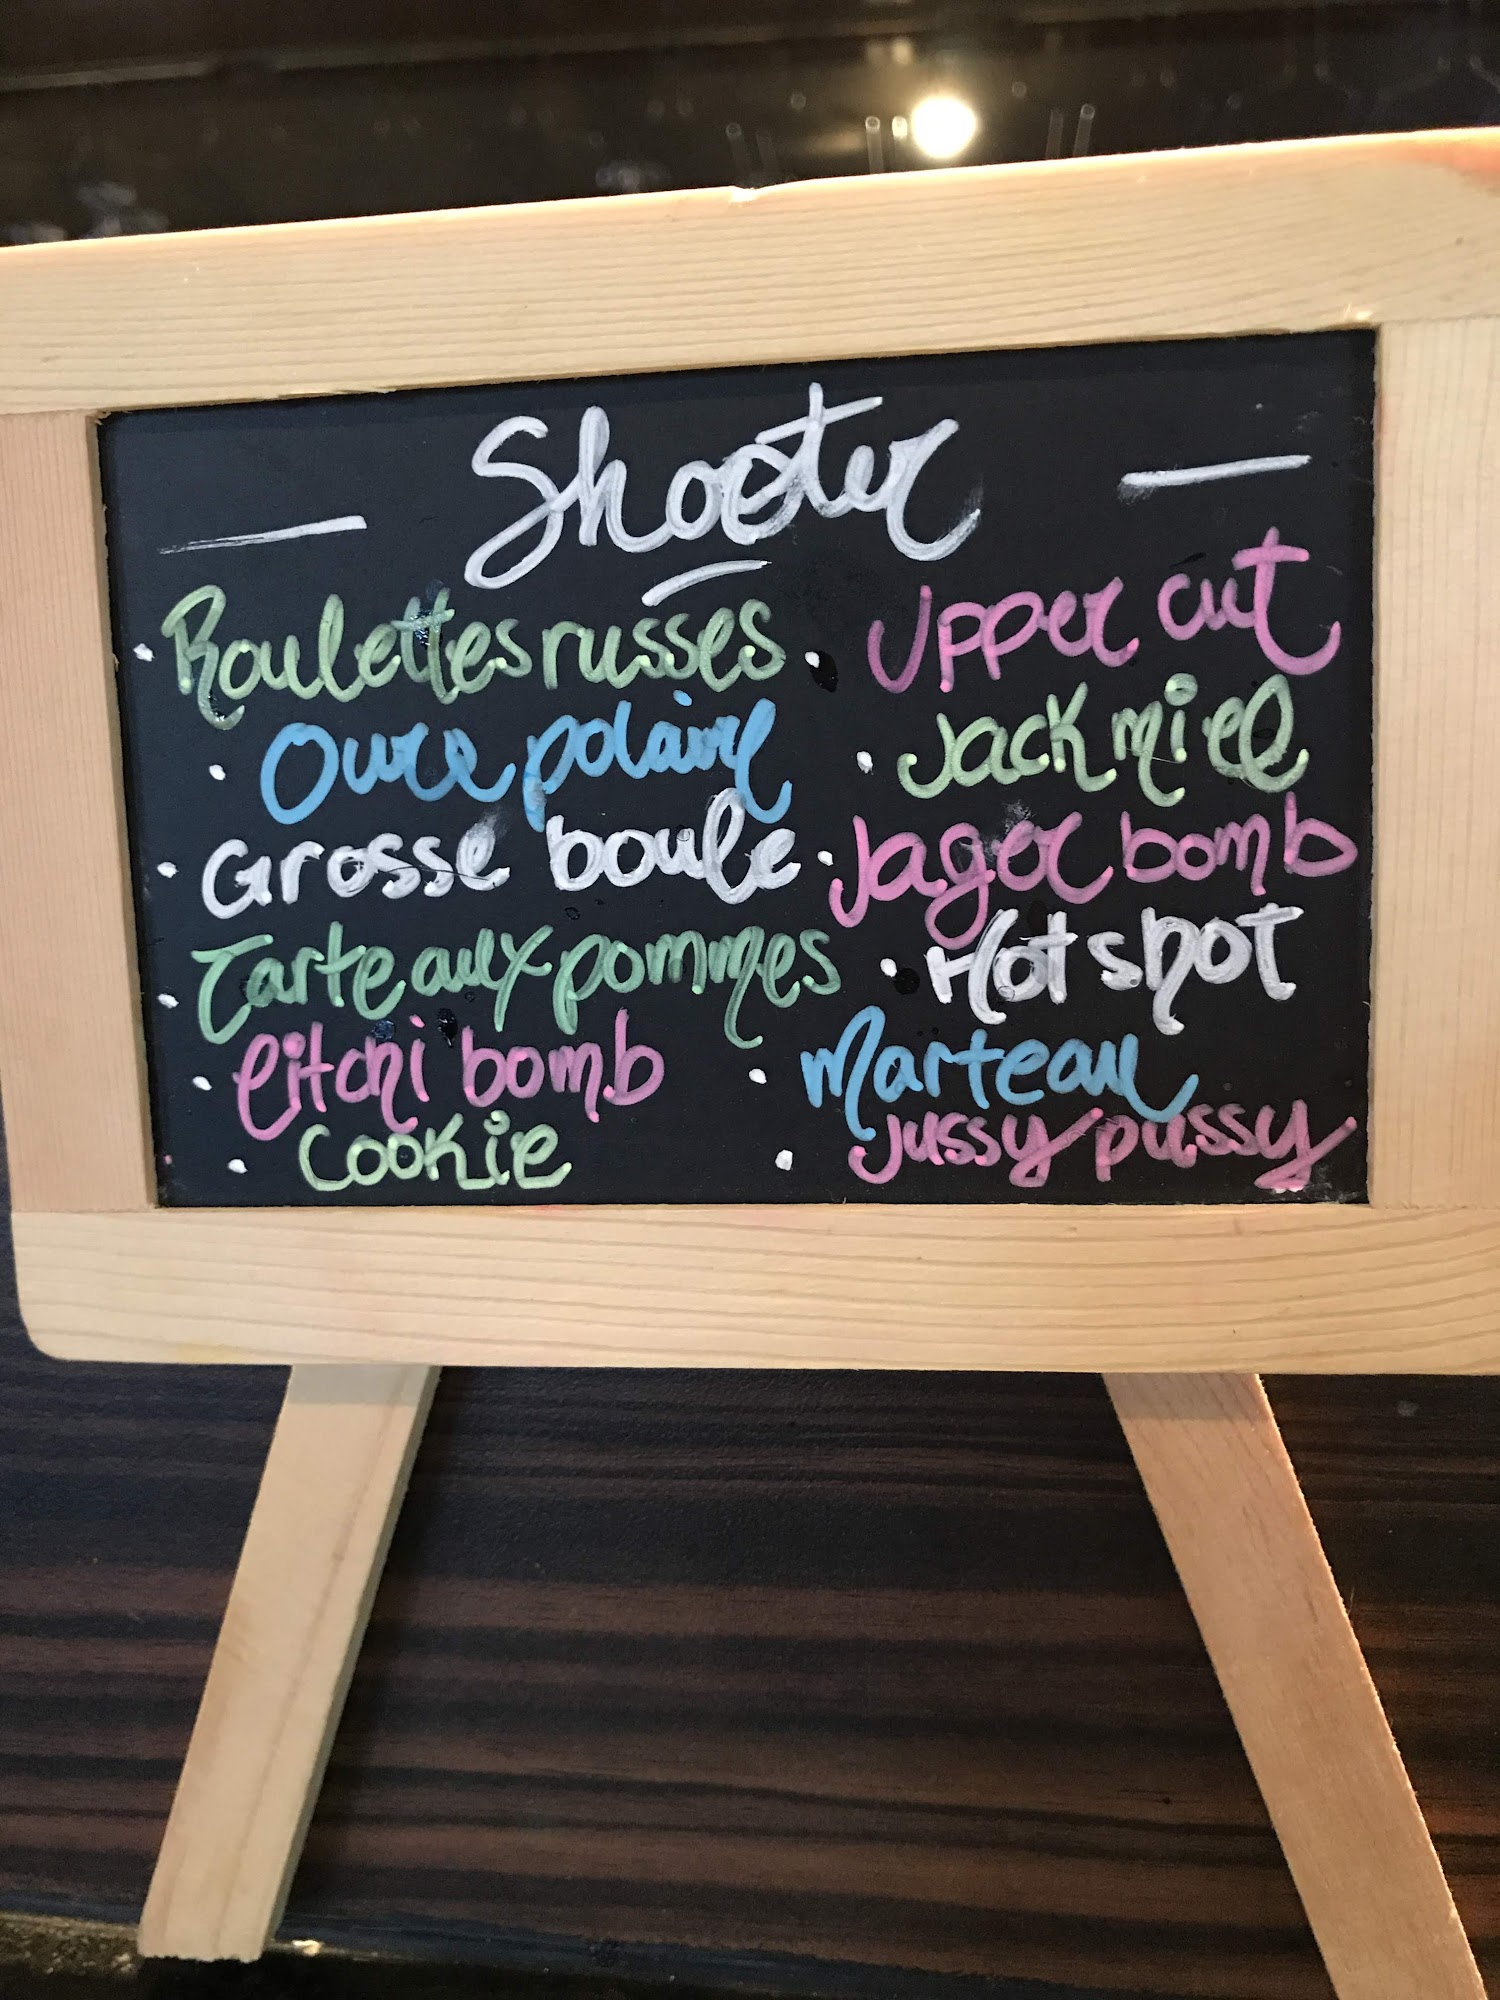 Shooter
• Roulettes russes
• Ource polaire
• Grosse boule
• Tarte aux pommes
• Litchi bomb
• Cookie
• Upper cut
• Jack miel
• Jager bomb
• Hot shot
• Marteau
• Jussy pussy